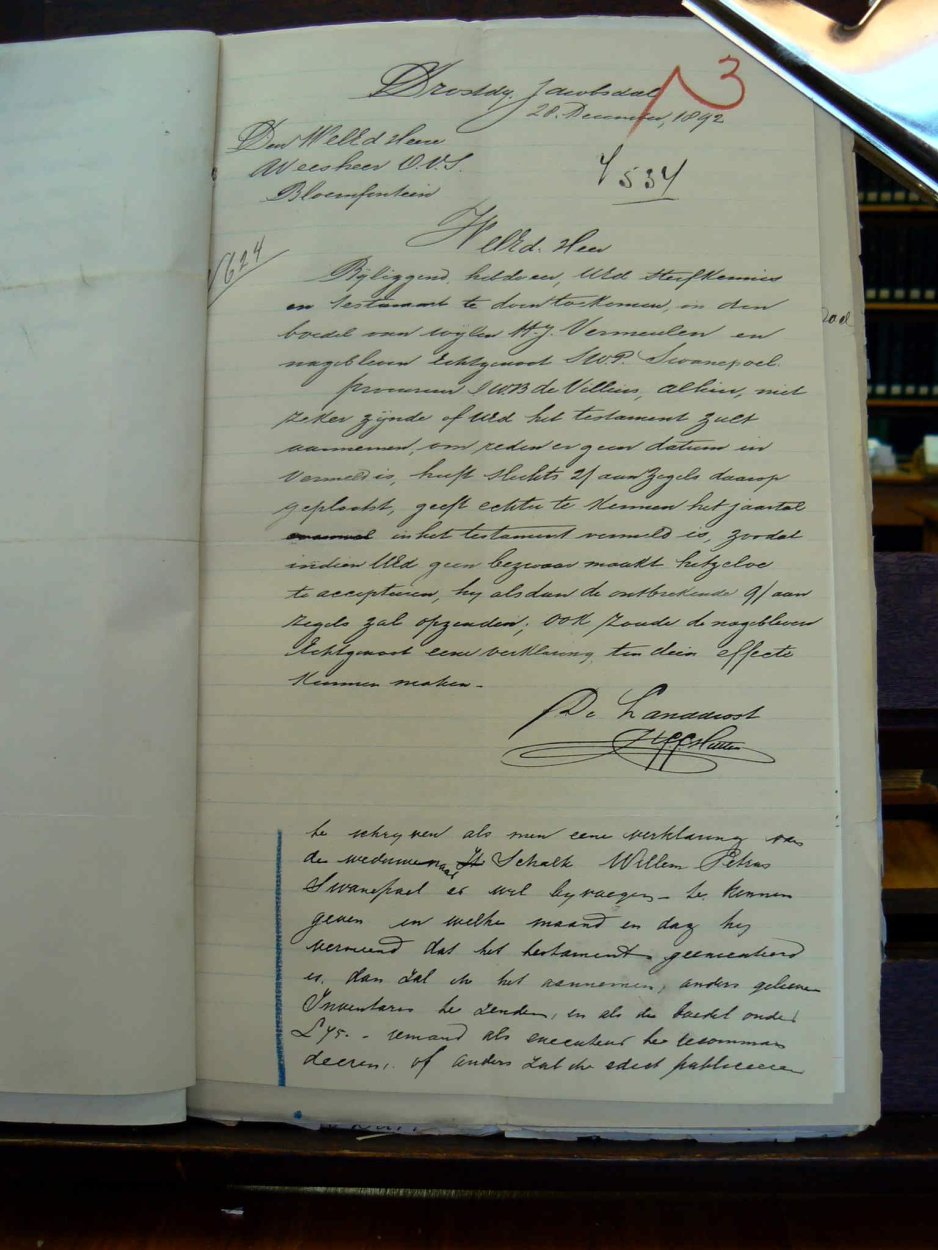 Drostdy, Jacobsdal
3
28. December, 1892
Den WelEd Heere
Weesheer O.V.S.
Bloemfontein
534
WelEd. Heer
624
Bijliggend, heb de eer, UEd sterfkennis
en testament te doen toekomen, in den
boedel van wijlen H.J. Vermeulen en
nagebleven Echtgenoot S.W.P. Swanepoel.
procureur I W B de Villiers, alhier, niet
zeker zijnde of UEd het testament zult
aannemen, om reden er geen datum in
vermeld is, heeft slechts 2/ aan zegels daarop
geplaatst, geeft echter te kennen het jaartal
in het testament vermeld is, zoodat
indien UEd geen bezwaar maakt hetzelve
te accepteeren, hij alsdan de ontbrekende 9/ aan
zegels zal opzenden; ook zoude de nagebleven
Echtgenoot eene verklaring ten dein effecte
kunnen maken.
De Landdrost
te schryven als men eene verklaring van
de weduwenaar Schalk Willem Petrus
Swanepoel er wil byvoegen - te kennen
geven in welke maand en dag hy
vermeend dat het testament gexecuteerd
is, dan zal ik het aannemen, anders gelieve
Inventaris te zenden, en als de boedel onder
£75. - iemand als executeur te recomman
deeren, of anders zal ik edict publiceeren